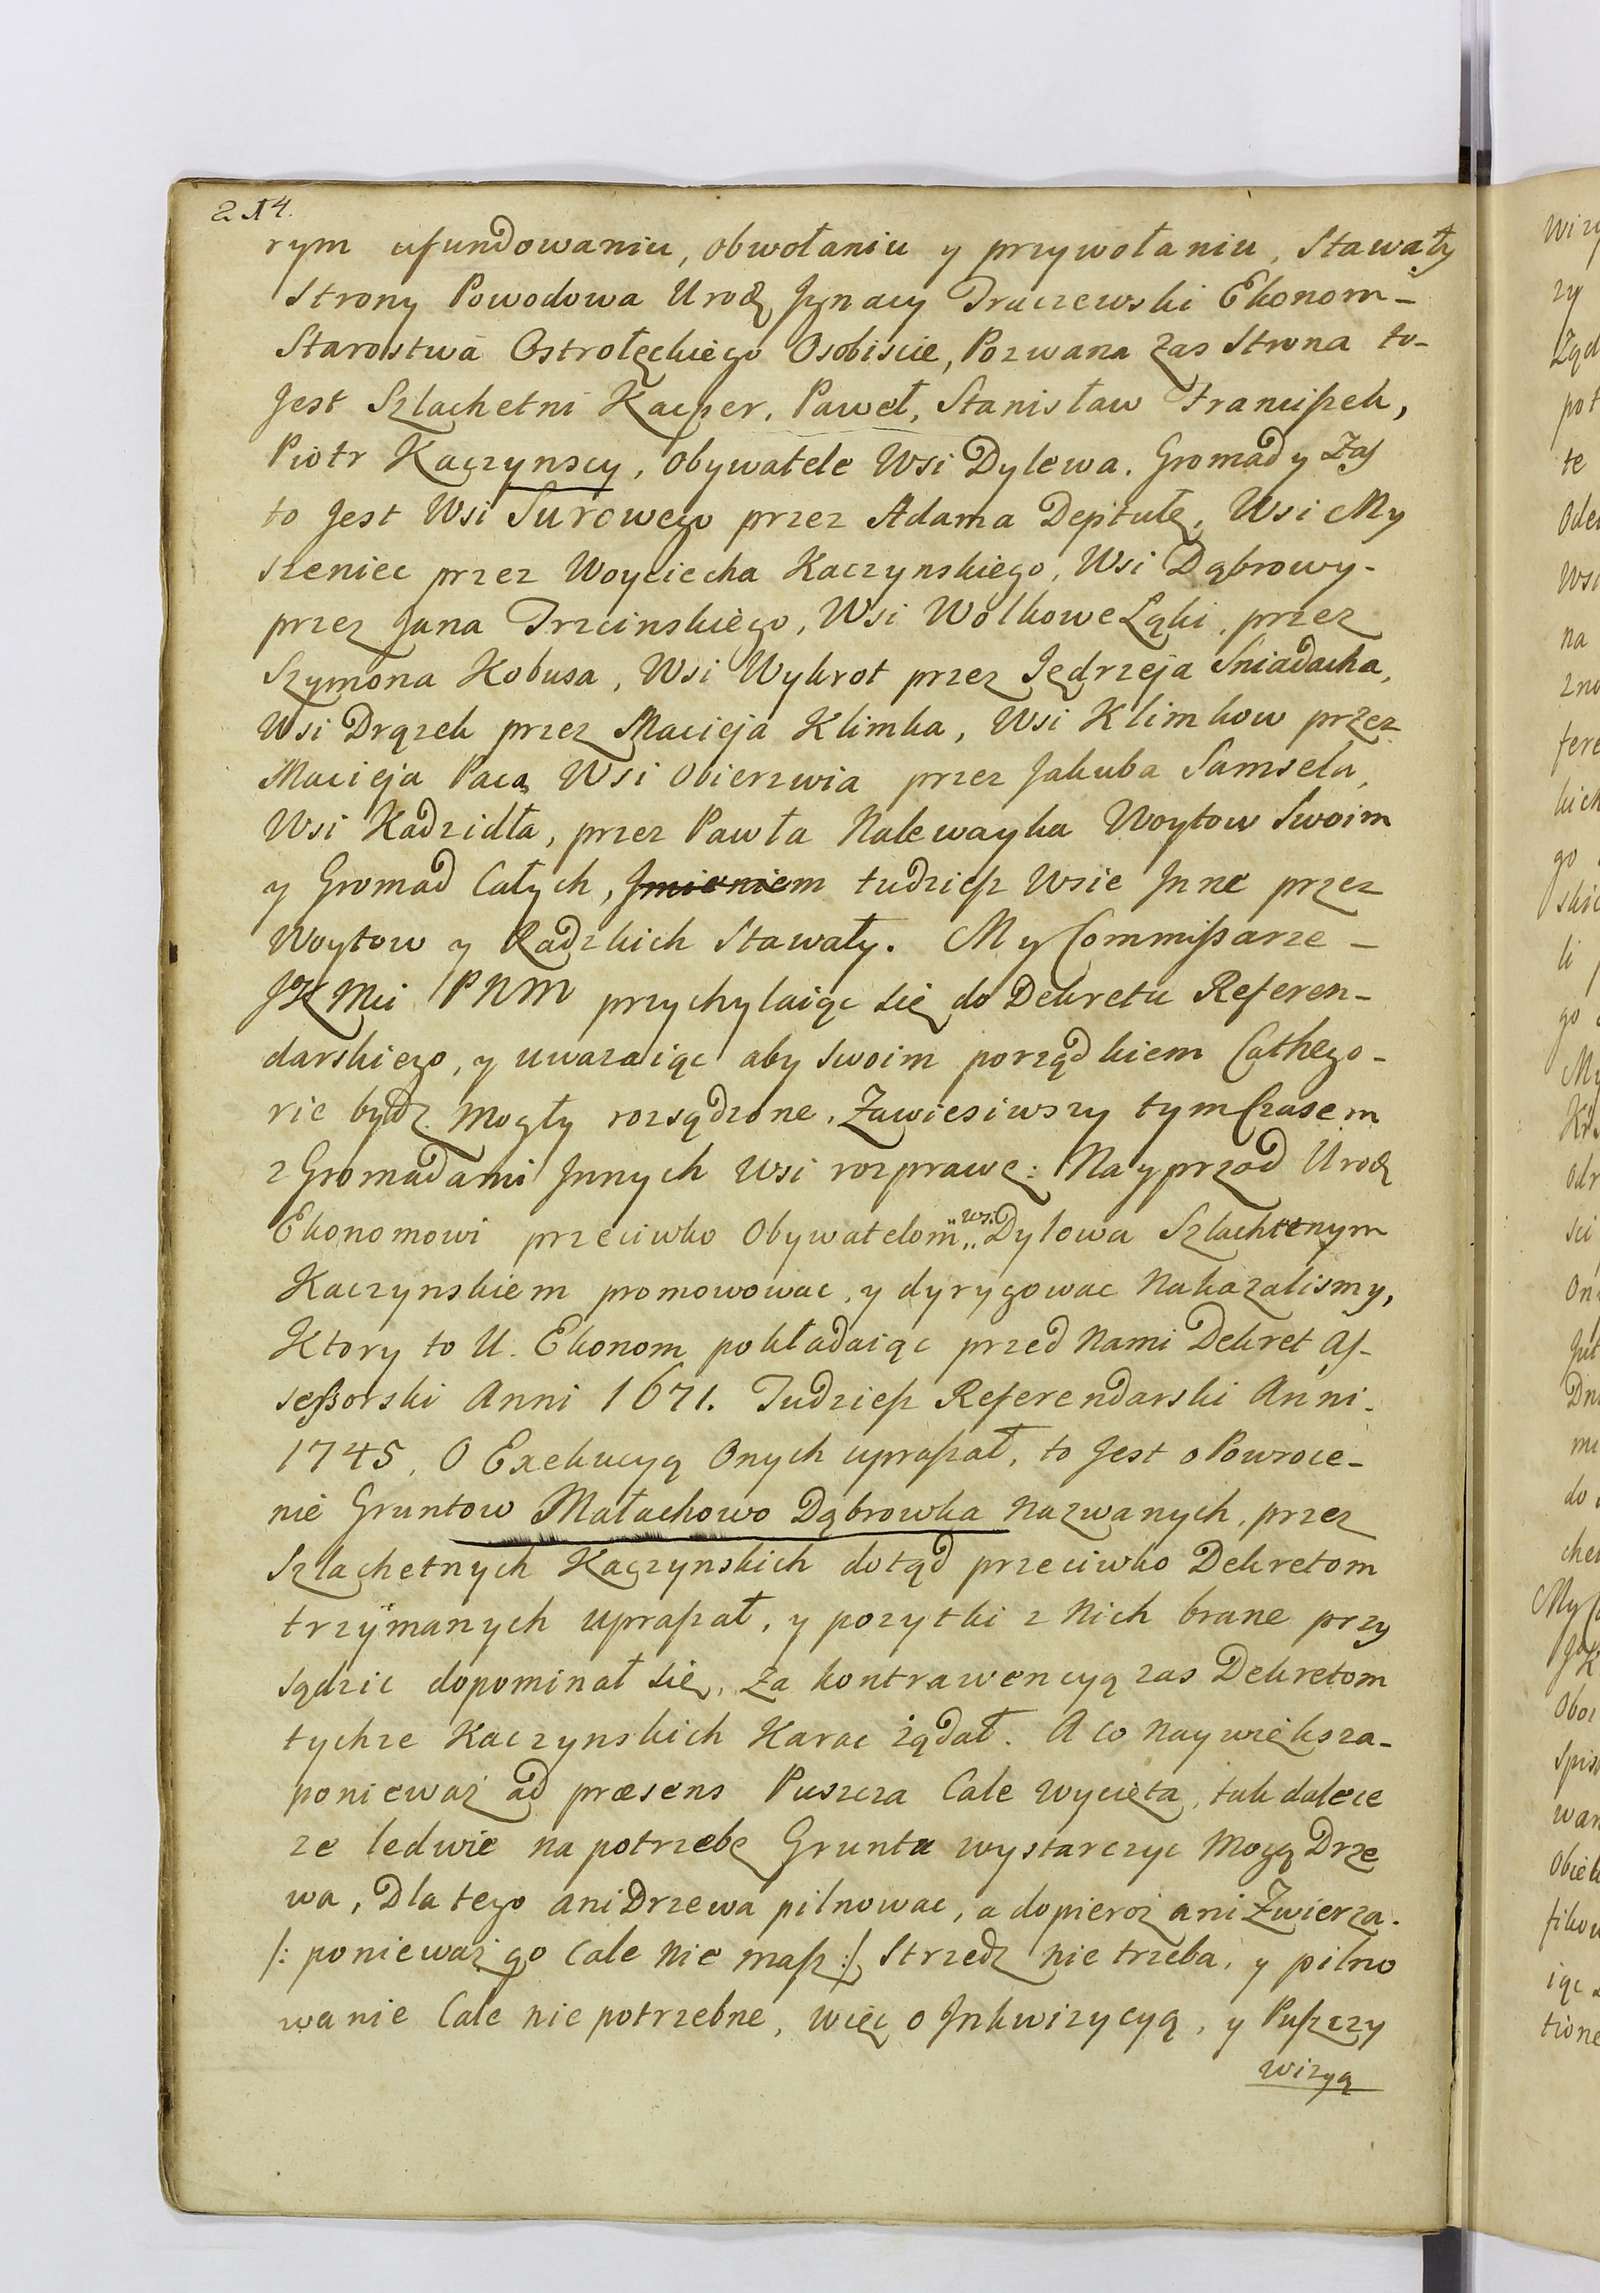 214.
rym ufundowaniu, obwołaniu y przywołaniu, Stawały
Strony Powodowa Urodz Jgnacy Traczewski Ekonom-
Starostwa Ostrołęckiego Osobiscie, Pozwana zas Strona to-
Jest Szlachetni Kacper, Paweł, Stanisław Franciszek,
Piotr Kaczynscy, Obywatele Wsi Dylewa. Gromady Zas
to Jest Wsi Surowego przez Adama Deptułę, Wsi My
szeniec przez Woyciecha Kaczynskiego, Wsi Dąbrowy-
przez Jana Trzcinskiego, Wsi Wolkowe Łąki, przez
Szymona Kobusa, Wsi Wykrot przez Jędrzeja Sniadacha,
Wsi Drązek przez Macieja Klimka, Wsi Klimkow przez
Macieja Paca, Wsi Obierzwia przez Jakuba Samsela,
Wsi Kadzidła, przez Pawła Nalewayka Woytow Swoim
y Gromad Całych, Jmieniem tudziesz Wsie Jnne przez
Woytow y Radzkich Stawały. My Commissarze -
JK Mci PNM przychylaiąc się do Dekretu Referen-
darskiego, y uwazaiąc aby swoim porządkiem Cathego-
rie bydz mogły rozsądzone, Zawiesiwszy tym Czasem
z Gromadami Jnnych Wsi rozprawę: Nayprzod Urodz
Ekonomowi przeciwko Obywatelom „ws. „Dylowa Szlachetnym
Kaczynskiem promowowac, y dyrygowac Nakazalismy,
Ktory to U. Ekonom pokładaiąc przed Nami Dekret As-
sessorski Anni 1671. Tudziesz Referendarski Anni-
1745, O Exekucyą Onych upraszał, to Jest o Powroce-
nie Gruntow Małachowo Dąbrowka Nazwanych, przez
Szlachetnych Kaczynskich dotąd przeciwko Dekretom
trzÿmanych upraszał, y pozytki z Nich brane przy
sądzic dopominał się, Za kontrawencyą zas Dekretom
tychze Kaczynskich Karac żądał. A co Naywiększa-
ponieważ ad præsens Puszcza Cale Wycięta, tak dalece
ze ledwie na potrzebę Grunta wystarczyc Mogą Drze
wa, Dla tego ani Drzewa pilnowac, a dopieroż ani Zwierza.
/: ponieważ go Cale Nie masz :/ Strzedz nie trzeba, y pilno
wanie Cale nie potrzebne, Więc o Jnkwizycyą, y Puszczy
wizyą